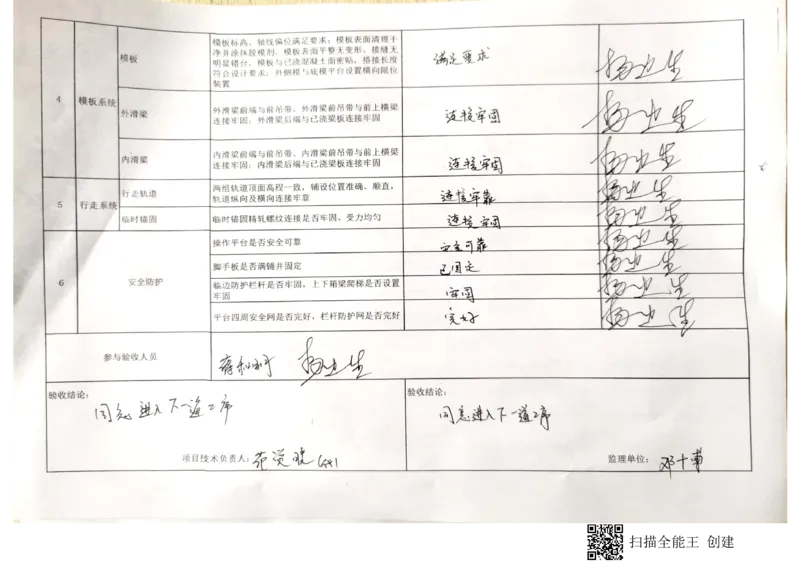 4
模板系统
模板
模板标高、轴线偏位满足要求；模板表面清理干
净并涂抹脱模剂，模板表面平整无变形、接缝无
明显错台，模板与已浇混凝土面密贴，搭接长度
符合设计要求；外侧模与底模平台设置横向限位
装置
满足要求
杨业生
外滑梁
外滑梁前端与前吊带、外滑梁前吊带与前上横梁
连接牢固；外滑梁后端与已浇梁板连接牢固
连接牢固
杨业生
内滑梁
内滑梁前端与前吊带、内滑梁前吊带与前上横梁
连接牢固；内滑梁后端与已浇梁板连接牢固
连接牢固
杨业生
5
行走系统
行走轨道
两组轨道顶面高程一致，铺设位置准确、顺直，
轨道纵向及横向连接牢靠
连接牢靠
杨业生
临时锚固
临时锚固精轧螺纹连接是否牢固、受力均匀
连接牢固
杨业生
6
安全防护
操作平台是否安全可靠
安全可靠
杨业生
脚手板是否满铺并固定
已固定
杨业生
临边防护栏杆是否牢固，上下箱梁爬梯是否设置
牢固
牢固
杨业生
平台四周安全网是否完好，栏杆防护网是否完好
完好
杨业生
参与验收人员
杨业生
验收结论：
同意进入下一道工序
项目技术负责人：
验收结论：
同意进入下一道工序
监理单位：
邓十甫
扫描全能王 创建